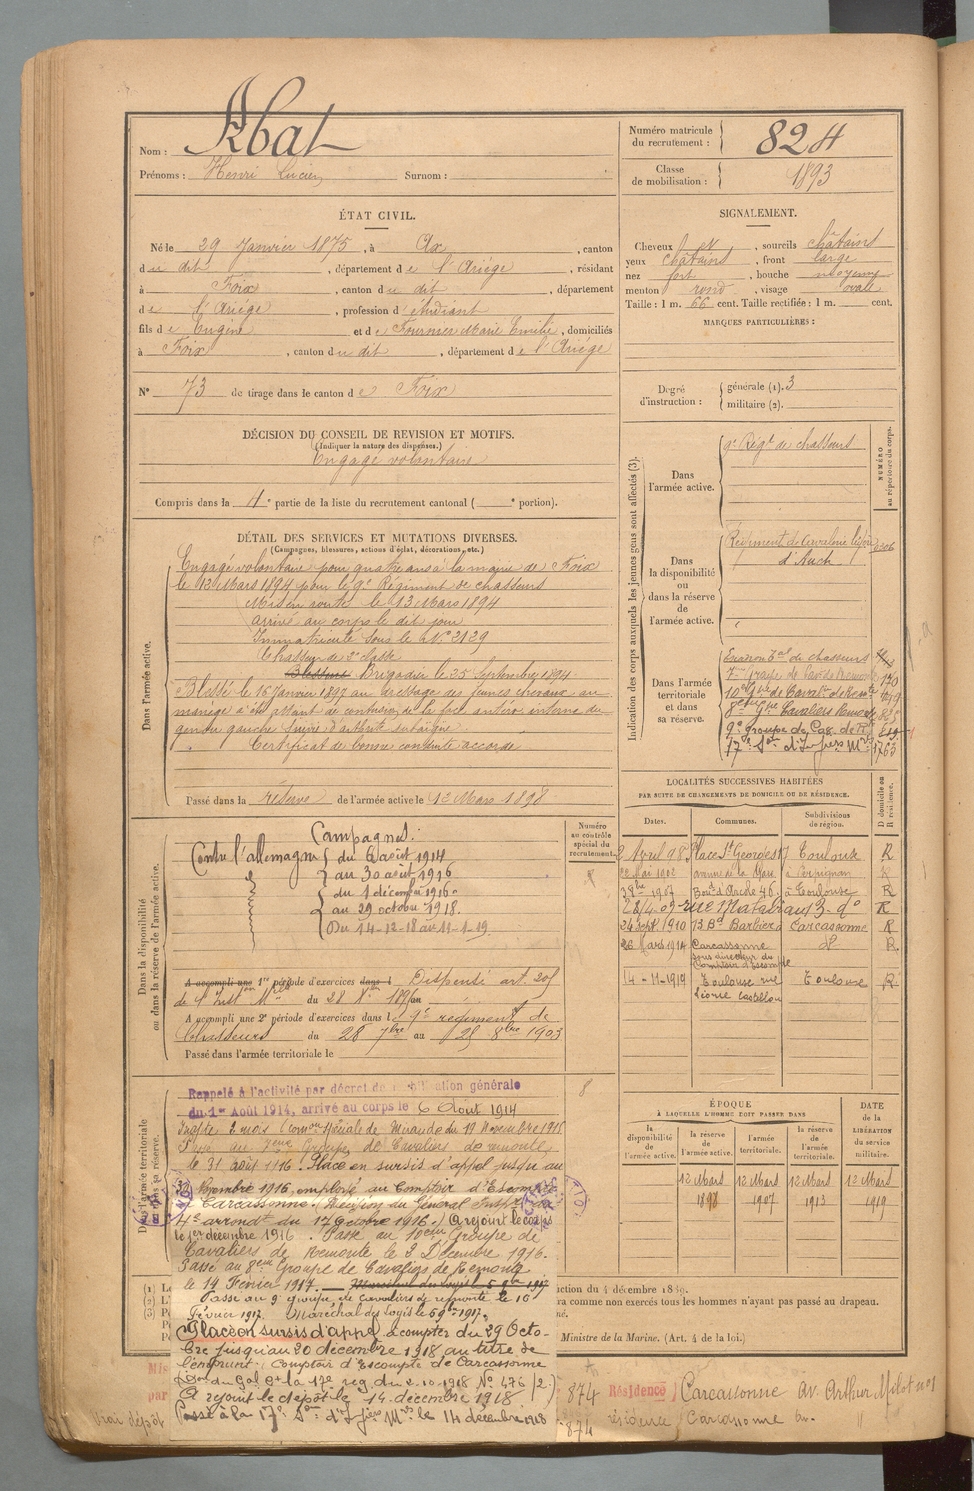 Nom : Abat
Prénoms : Henri Lucien Surnom :
Numéro matricule du recrutement : 824
Classe de mobilisation : 1893
ÉTAT CIVIL.
Né le 29 Janvier 1875, à Ax, canton
du dit, département de l'Ariège, résidant
à Foix, canton du dit, département
de l'Ariège, profession d'étudiant
fils de Eugène et de Fournier Marie Emilie, domiciliés
à Foix, canton du dit, département de l'Ariège
N° 73 de tirage dans le canton de Foix
SIGNALEMENT.
Cheveux , sourcils châtains
yeux châtains, front large
nez fort, bouche moyenne
menton rond, visage ovale
Taille : 1 m. 66 cent. Taille rectifiée : 1 m. cent.
MARQUES PARTICULIÈRES :
Degré d'instruction : générale (1). 3
militaire (2).
DÉCISION DU CONSEIL DE REVISION ET MOTIFS.
(Indiquer la nature des dispenses.)
Engagé volontaire
Compris dans la 4e partie de la liste du recrutement cantonal ( e portion).
DÉTAIL DES SERVICES ET MUTATIONS DIVERSES.
(Campagnes, blessures, actions d'éclat, décorations, etc.)
Dans l'armée active.
Engagé volontaire pour quatre ans à la mairie de Foix
le 13 Mars 1894 pour le 9e Régiment de chasseurs
Mis en route le 13 Mars 1894
arrivé au corps le dit jour
Immatriculé sous le N° 2129
Chasseur de 2e classe
Brigadier le 25 Septembre 1894
Blessé le 16 Janvier 1897 au dressage des jeunes chevaux au
manège a été atteint de contusion de la face antéro interne du
genou gauche suivie d'arthrite subaigüe
Certificat de bonne conduite accordé
Passé dans la réserve de l'armée active le 12 Mars 1898
Dans la disponibilité ou dans la réserve de l'armée active.
Campagnes :
Contre l'allemagne du 6 août 1914
au 30 août 1916
du 1 décembre 1916
au 29 octobre 1918.
Du 14-12-18 au 11-1-19.
Numéro au contrôle spécial du recrutement.
A accompli une 1re période d'exercices dans l Dispensé art. 205
A accompli une 2e période d'exercices dans l e 9e régiment de
Chasseurs du 28 7bre au 25 8bre 1903
Passé dans l'armée territoriale le
Indication des corps auxquels les jeunes gens sont affectés (3).
Dans l'armée active.
9e Régt de chasseurs
NUMÉRO au répertoire du corps.
Dans la disponibilité ou dans la réserve de l'armée active.
Régiment de Cavalerie légère
d'Auch
Dans l'armée territoriale et dans sa réserve.
Escadron Tal de chasseurs
9e groupe de Cav. de Rte
17e Son d'Infiers Mres 1763
LOCALITÉS SUCCESSIVES HABITÉES
PAR SUITE DE CHANGEMENTS DE DOMICILE OU DE RÉSIDENCE.
Dates. Communes. Subdivisions de région. D domicile ou R résidence.
2 Avril 98 Place St Georges 17 Toulouse R
22 Mai 1902 avenue de la Gare à Perpignan R
3 8bre 1907 Boud d'Arcole 46. à Toulouse R
28/4-09 rue Matabiau 3 do R
24 Sept. 1910 13 Bd Barbès Carcassonne R
26 Mars 1914 Carcassonne do R.
sous directeur du
Comptoir d'Escompte
14-11-1919 Toulouse rue Toulouse R
Léonce Castelbou
ÉPOQUE
À LAQUELLE L'HOMME DOIT PASSER DANS
DATE de la LIBÉRATION du service militaire.
la disponibilité de l'armée active. la réserve de l'armée active. l'armée territoriale. la réserve de l'armée territoriale.
12 Mars 1898 12 Mars 1907 12 Mars 1913 12 Mars 1919
Rappelé à l'activité par décret de mobilisation générale
du 1er Août 1914, arrivé au corps le 6 Août 1914
Inapte 2 mois Comon spéciale de Mirande du 19 Novembre 1915
Passé au 7eme Groupe de Cavaliers de remonte
le 31 août 1916. Placé en sursis d'appel jusqu'au
30 Novembre 1916, employé au Comptoir d'Escompte
à Carcassonne. (Décision du Général Inspr
4e arrondt du 17 Octobre 1916.) A rejoint le corps
le 1er décembre 1916. Passé au 10eme Groupe de
Cavaliers de Remonte le 3 Décembre 1916.
Passé au 8eme Groupe de Cavaliers de Remonte
le 14 Février 1917.
Passé au 9e groupe de cavaliers de remonte le 16
Février 1917. Maréchal des logis le 6 9bre 1917.
Placé en sursis d'appel à compter du 29 Octo-
bre jusqu'au 20 décembre 1918 au titre de
l'emprunt, Comptoir d'Escompte de Carcassonne
Don du Gal Ct la 17e reg du 2.10.1918 N° 476/2.)
A rejoint le dépôt le 14 décembre 1918
Passé à la 17e Son d'Infiers Mres le 14 décembre 1918
ction du 4 décembre 1889.
ra comme non exercés tous les hommes n'ayant pas passé au drapeau.
Ministre de la Marine. (Art. 4 de la loi.)
874 Résidence Carcassonne Av. Arthur Mulot no 1
874 résidence Carcassonne